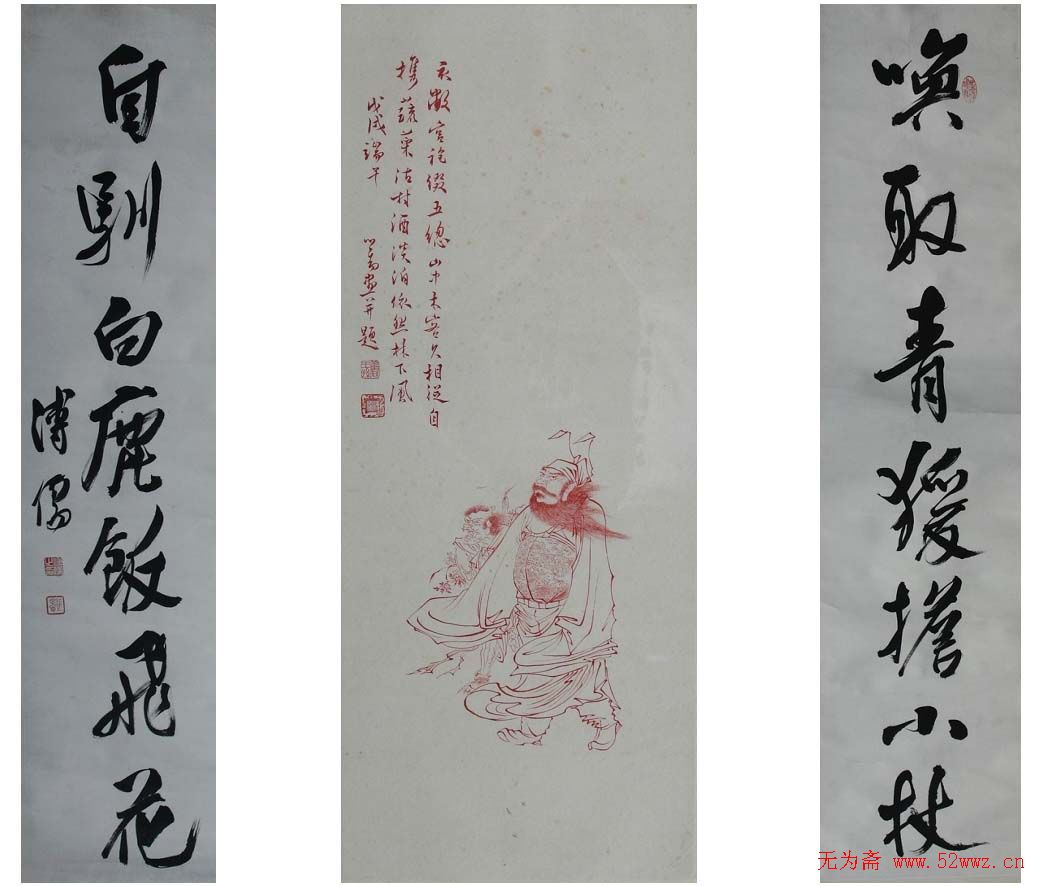 喚取青猨擔小杖
衣敝官袍綴五總山中木客久相從自
攜蔬菜沽村酒淡泊依然林下風
戊戌端午 心畬畫并題
自馴白鹿飯飛花
溥儒
无为斋 www.52wwz.cn